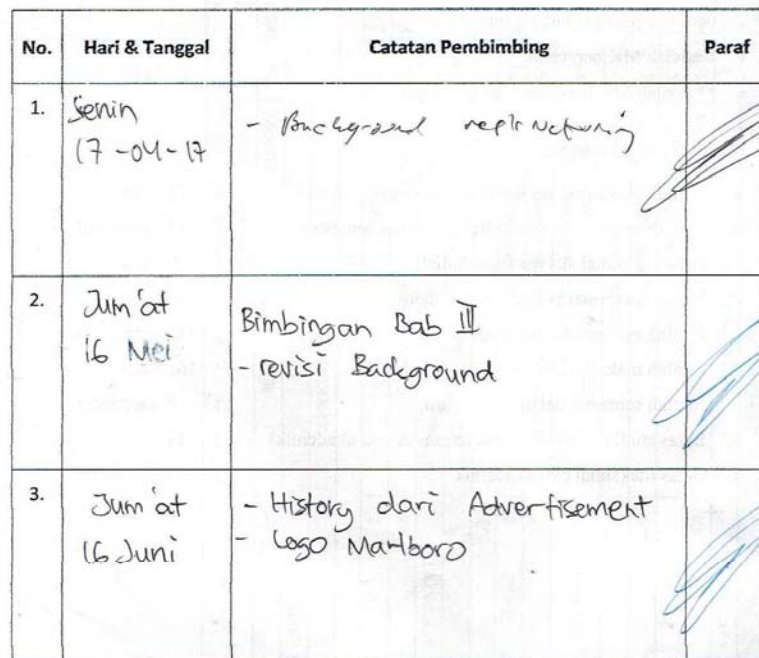 No. Hari & Tanggal Catatan Pembimbing Paraf
1. Senin
17-04-17
- Background
2. Jum'at
16 Mei
Bimbingan Bab III
- revisi Background
3. Jum'at
16 Juni
- History dari Advertisement
- Logo Marlboro